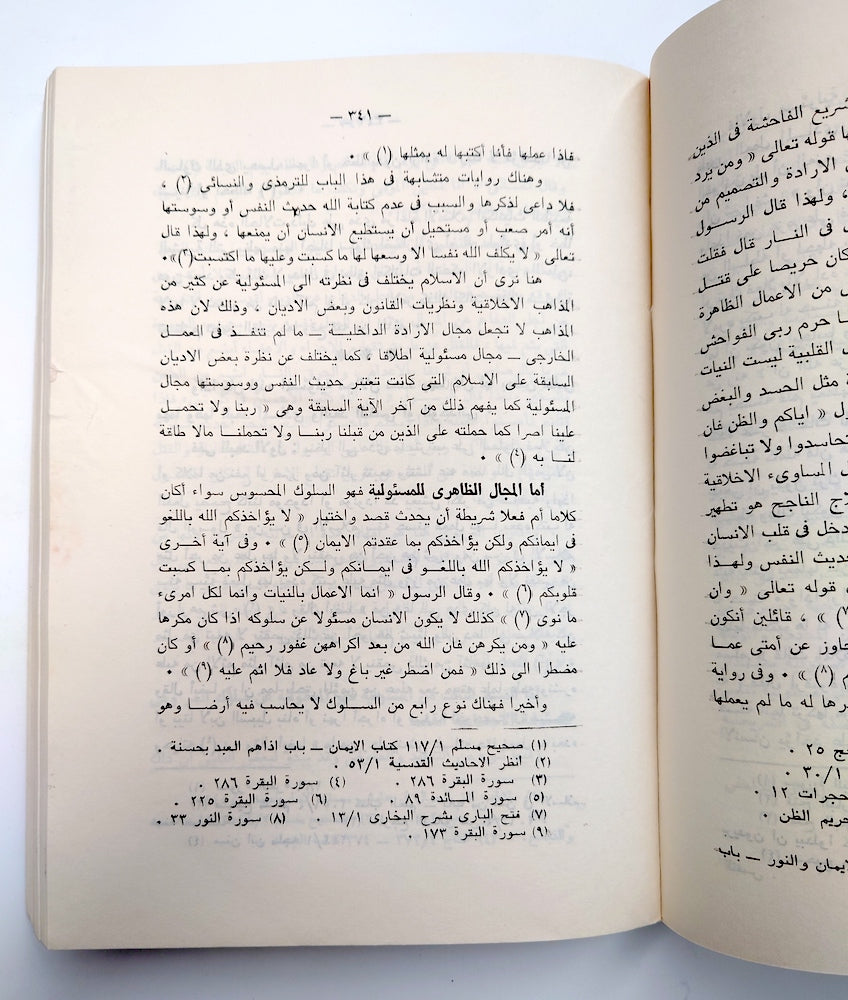 — ٣٤١ —
فاذا عملها فأنا أكتبها له بمثلها (١) » ٠
وهناك روايات متشابهة فى هذا الباب للترمذى والنسائى (٢) ،
فلا داعى لذكرها والسبب فى عدم كتابة الله حديث النفس أو وسوستها
أنه أمر صعب أو مستحيل أن يستطيع الانسان أن يمنعها ، ولهذا قال
تعالى « لا يكلف الله نفسا الا وسعها لها ما كسبت وعليها ما اكتسبت(٣)»٠
هنا نرى أن الاسلام يختلف فى نظرته الى المسئولية عن كثير من
المذاهب الاخلاقية ونظريات القانون وبعض الاديان ، وذلك لان هذه
المذاهب لا تجعل مجال الارادة الداخلية — ما لم تنفذ فى العمل
الخارجى — مجال مسئولية اطلاقا ، كما يختلف عن نظرة بعض الاديان
السابقة على الاسلام التى كانت تعتبر حديث النفس ووسوستها مجال
المسئولية كما يفهم ذلك من آخر الآية السابقة وهى « ربنا ولا تحمل
علينا اصرا كما حملته على الذين من قبلنا ربنا ولا تحملنا مالا طاقة
لنا به (٤) » ٠
أما المجال الظاهرى للمسئولية فهو السلوك المحسوس سواء أكان
كلاما أم فعلا شريطة أن يحدث قصد واختيار « لا يؤاخذكم الله باللغو
فى ايمانكم ولكن يؤاخذكم بما عقدتم الايمان (٥) » ٠ وفى آية أخرى
« لا يؤاخذكم الله باللغو فى ايمانكم ولكن يؤاخذكم بما كسبت
قلوبكم (٦) » ٠ وقال الرسول « انما الاعمال بالنيات وانما لكل امرىء
ما نوى (٧) » كذلك لا يكون الانسان مسئولا عن سلوكه اذا كان مكرها
عليه « ومن يكرهن فان الله من بعد اكراههن غفور رحيم (٨) » أو كان
مضطرا الى ذلك « فمن اضطر غير باغ ولا عاد فلا اثم عليه (٩) » ٠
وأخيرا فهناك نوع رابع من السلوك لا يحاسب فيه أرضا وهو
(١) صحيح مسلم ١١٧/١ كتاب الايمان — باب اذاهم العبد بحسنة ٠
(٢) انظر الاحاديث القدسية ٥٣/١ ٠
(٣) سورة البقرة ٢٨٦ ٠ (٤) سورة البقرة ٢٨٦ ٠
(٥) سورة المائدة ٨٩ ٠ (٦) سورة البقرة ٢٢٥ ٠
(٧) فتح البارى بشرح البخارى ١٣/١ ٠ (٨) سورة النور ٣٣ ٠
(٩) سورة البقرة ١٧٣ ٠
شريع الفاحشة فى الذين
ها قوله تعالى « ومن يرد
الارادة والتصميم من
، ولهذا قال الرسول
فى النار قال فقلت
كان حريصا على قتل
من الاعمال الظاهرة
حرم ربى الفواحش
القلبية ليست النيات
مثل الحسد والبغض
« اياكم والظن فان
تحاسدوا ولا تباغضوا
المساوىء الاخلاقية
الناجح هو تطهير
دخل فى قلب الانسان
حديث النفس ولهذا
قوله تعالى « وان
» ، قائلين أنكون
عن أمتى عما
(٨) » ٠ وفى رواية
له ما لم يعملها
٢٥ ٠
٣٠/١ ٠
حجرات ١٢ ٠
الظن ٠
والنور — باب